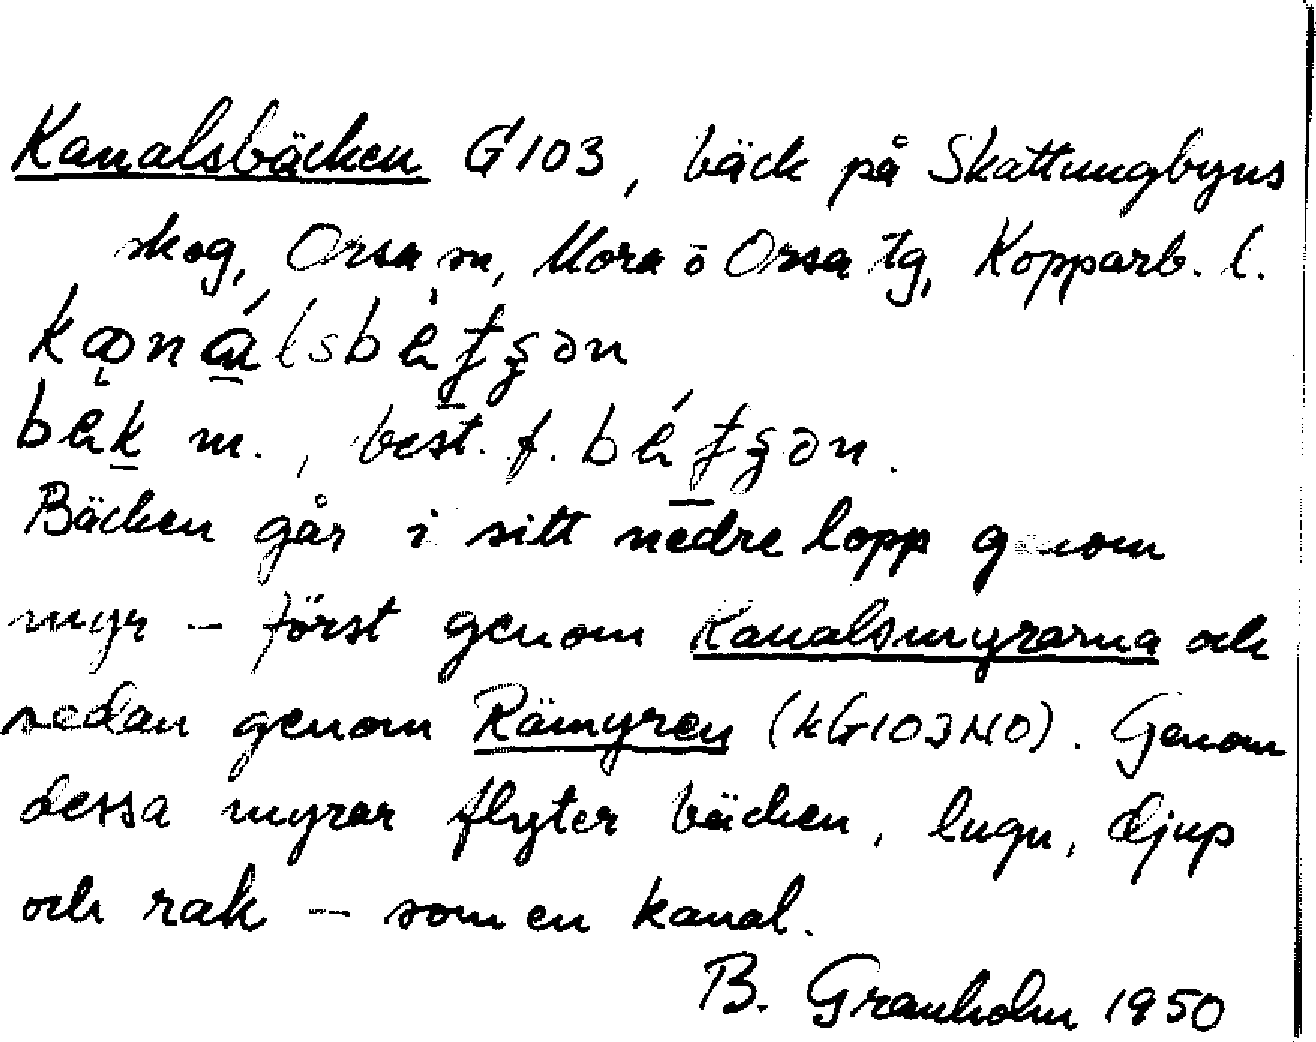 Kanalsbäcken G103, bäck på Skattungbyns
skog, Orsa sn, Mora o Orsa tg, Kopparb. l.
m., best. f.
Bäcken går i sitt nedre lopp genom
myr – först genom Kanalsmyrarna och
sedan genom Rämyren (kG103NO). Genom
dessa myrar flyter bäcken, lugn, djup
och rak – som en kanal.
B. Granholm 1950